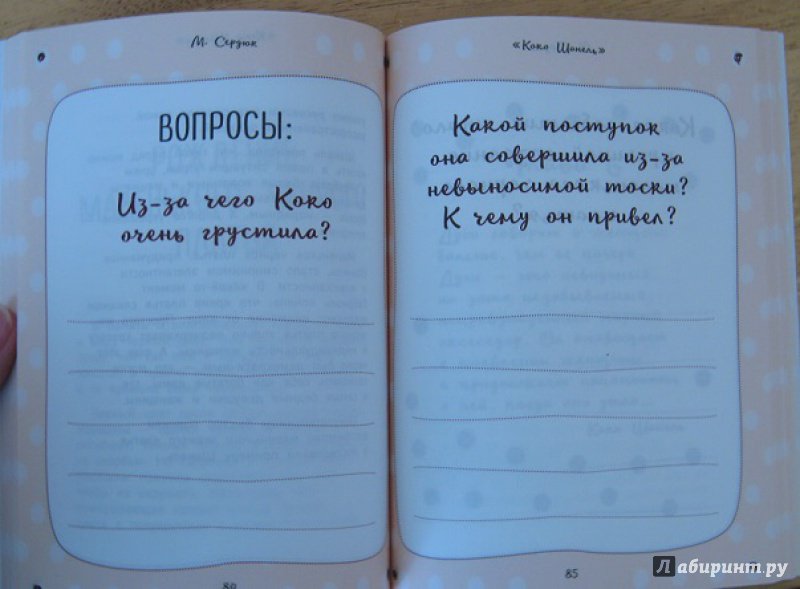 М. Сердюк
ВОПРОСЫ:
Из-за чего Коко
очень грустила?
«Коко Шанель»
Какой поступок
она совершила из-за
невыносимой тоски?
К чему он привел?
85
Лабиринт.ру